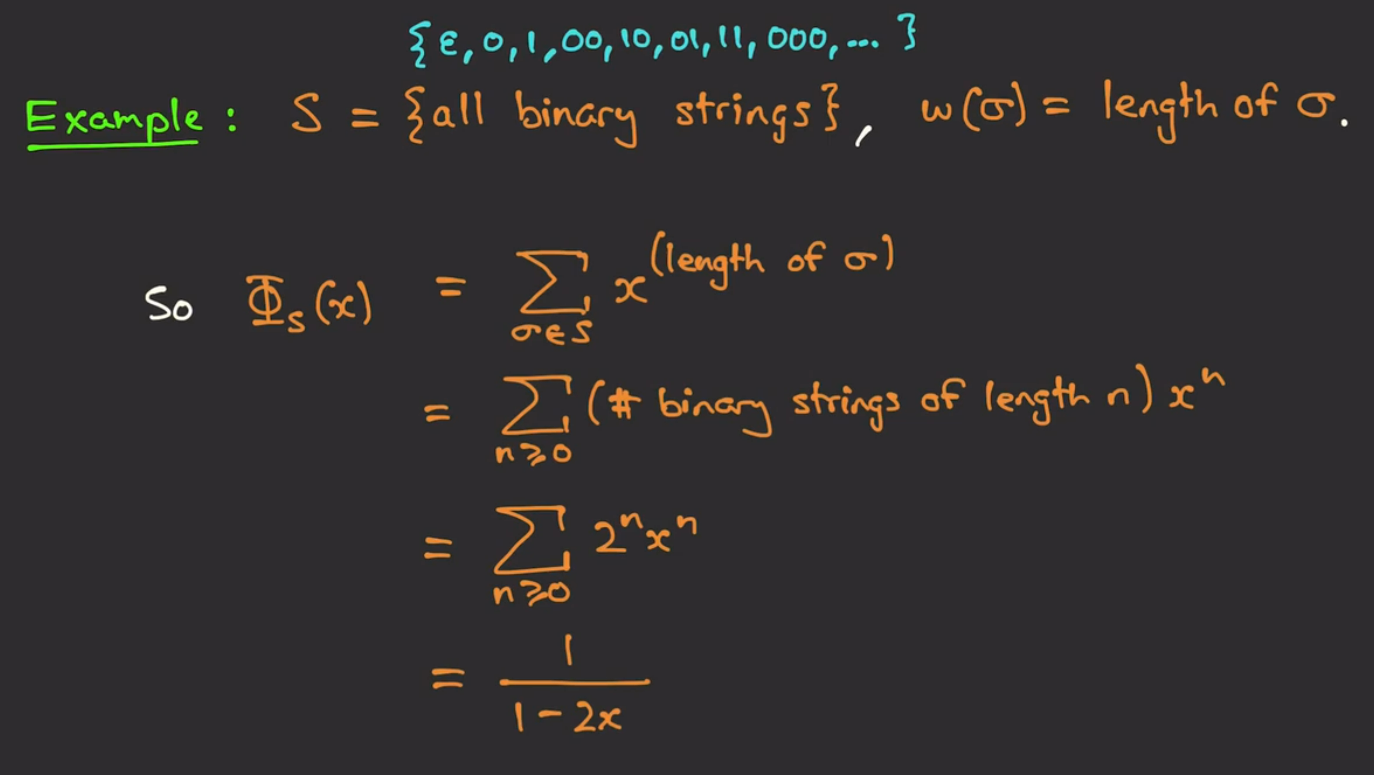 {ε, 0, 1, 00, 10, 01, 11, 000, ... }
Example: S = {all binary strings}, w(σ) = length of σ.
So Φ_S(x) = ∑_{σ∈S} x^{(length of σ)}
= ∑_{n≥0} (# binary strings of length n) x^n
= ∑_{n≥0} 2^n x^n
= 1/(1-2x)